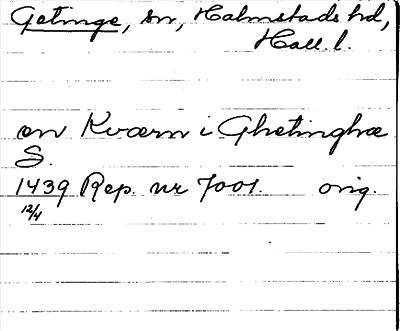 Getinge, sn, Halmstads hd,
Hall. l.
en Kværn i Ghetinghæ
S.
1439 Rep. nr 7001. orig.
12/4